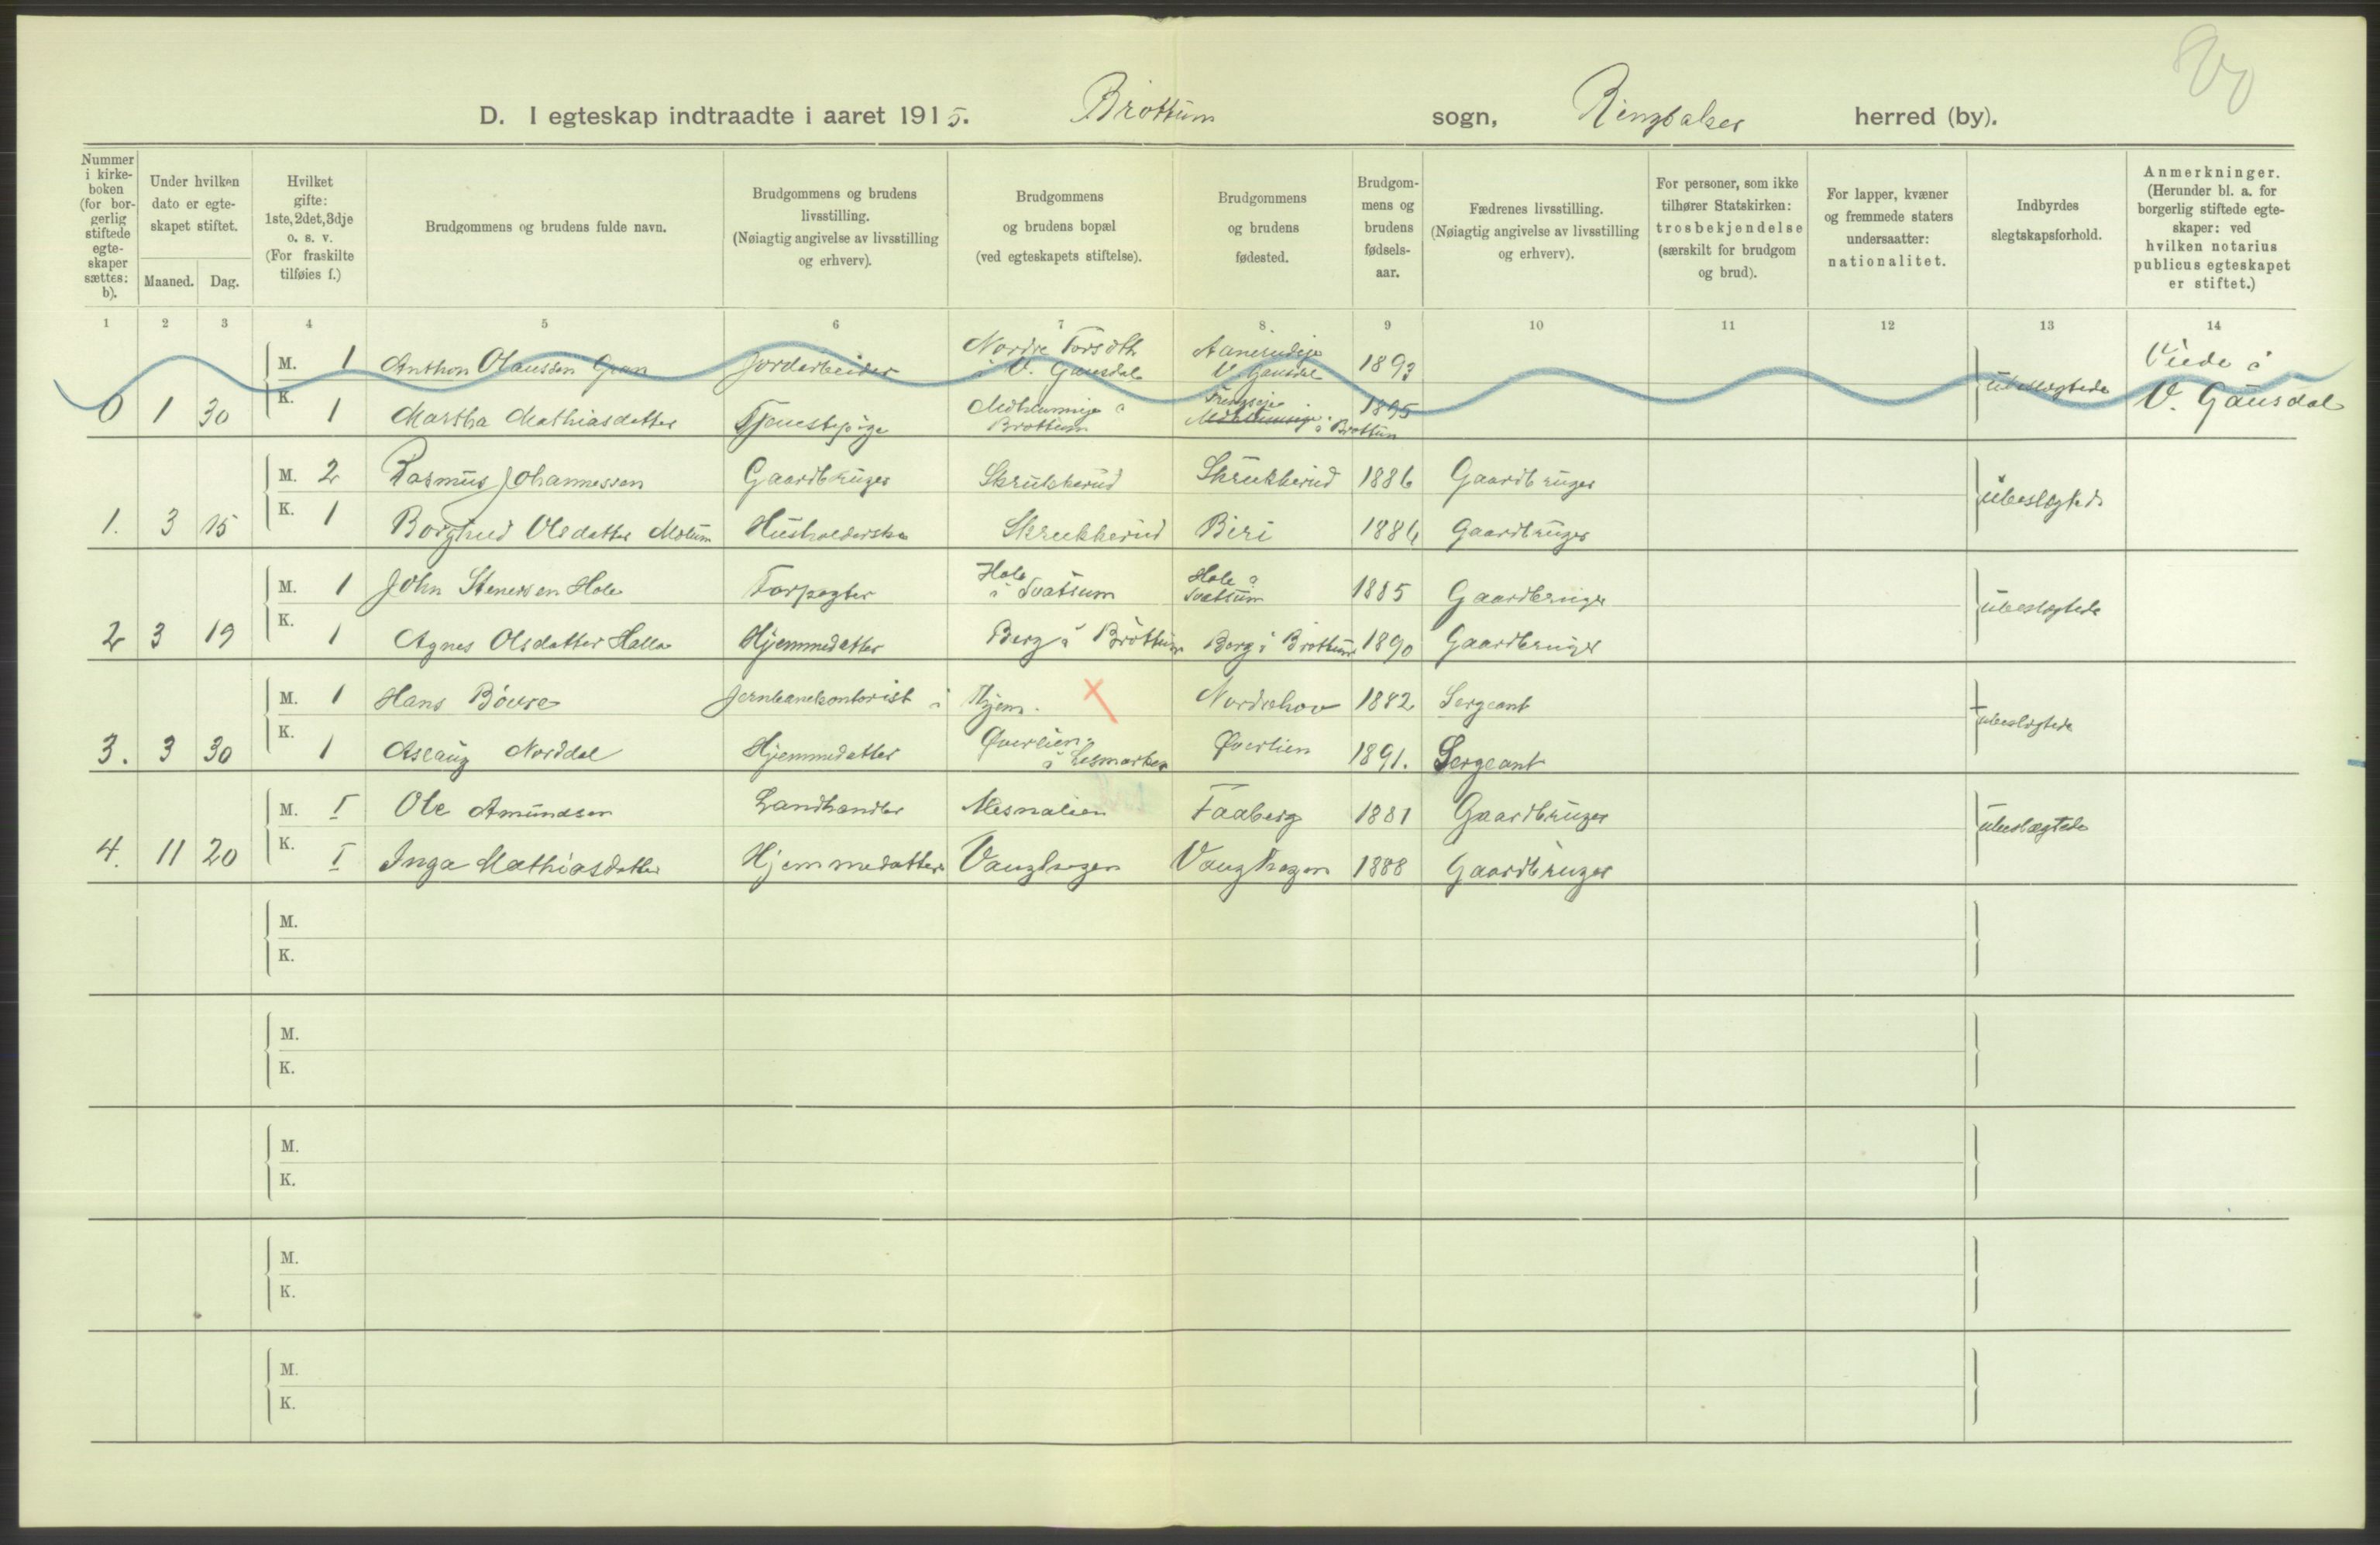 80
D. I egteskap indtraadte i aaret 1915. Brøttum sogn, Ringsaker herred (by).
Nummer i kirke-boken (for bor-gerlig stiftede egte-skaper sættes: b).
Under hvilken dato er egte-skapet stiftet.
Maaned. Dag.
Hvilket gifte: 1ste, 2det, 3dje o. s. v. (For fraskilte tilføies f.)
Brudgommens og brudens fulde navn.
Brudgommens og brudens livsstilling. (Nøiagtig angivelse av livsstilling og erhverv).
Brudgommens og brudens bopæl (ved egteskapets stiftelse).
Brudgommens og brudens fødested.
Brudgom-mens og brudens fødsels-aar.
Fædrenes livsstilling. (Nøiagtig angivelse av livsstilling og erhverv).
For personer, som ikke tilhører Statskirken: trosbekjendelse (særskilt for brudgom og brud).
For lapper, kvæner og fremmede staters undersaatter: nationalitet.
Indbyrdes slegtskapsforhold.
Anmerkninger. (Herunder bl. a. for borgerlig stiftede egte-skaper: ved hvilken notarius publicus egteskapet er stiftet.)
1 2 3 4 5 6 7 8 9 10 11 12 13 14
M. 1 Anthon Olausen Gran Jordarbeider Nordre Forseth i V. Gausdal V. Gausdal 1893
0 1 30 K. 1 Martha Mathiasdatter Tjenestepige Brøttum i Brøttum 1895 ubeslægtede Viede i V. Gausdal
M. 2 Rasmus Johannessen Gaardbruger Skrukkerud Skrukkerud 1886 Gaardbruger
1. 3 15 K. 1 Borghild Olsdatter Molum Husholderske Skrukkerud Biri 1886 Gaardbruger ubeslægtede
M. 1 John Stenersen Hole Forpagter Hole i Svatsum Hole i Svatsum 1885 Gaardbruger
2 3 19 K. 1 Agnes Olsdatter Halla Hjemmedatter Berg i Brøttum Berg i Brøttum 1890 Gaardbruger ubeslægtede
M. 1 Hans Bövre Jernbanekontorist i Thjem. Nordrehov 1882 Sergeant
3. 3 30 K. 1 Aslaug Norddal Hjemmedatter Øverlien i Lismarken Øverlien 1891. Sergeant ubeslægtede
M. I Ole Amundsen Landhandler Mesnalien Faaberg 1881 Gaardbruger
4. 11 20 K. I Inga Mathiasdatter Hjemmedatter Vanghagen Vanghagen 1888 Gaardbruger ubeslægtede
M.
K.
M.
K.
M.
K.
M.
K.
M.
K.